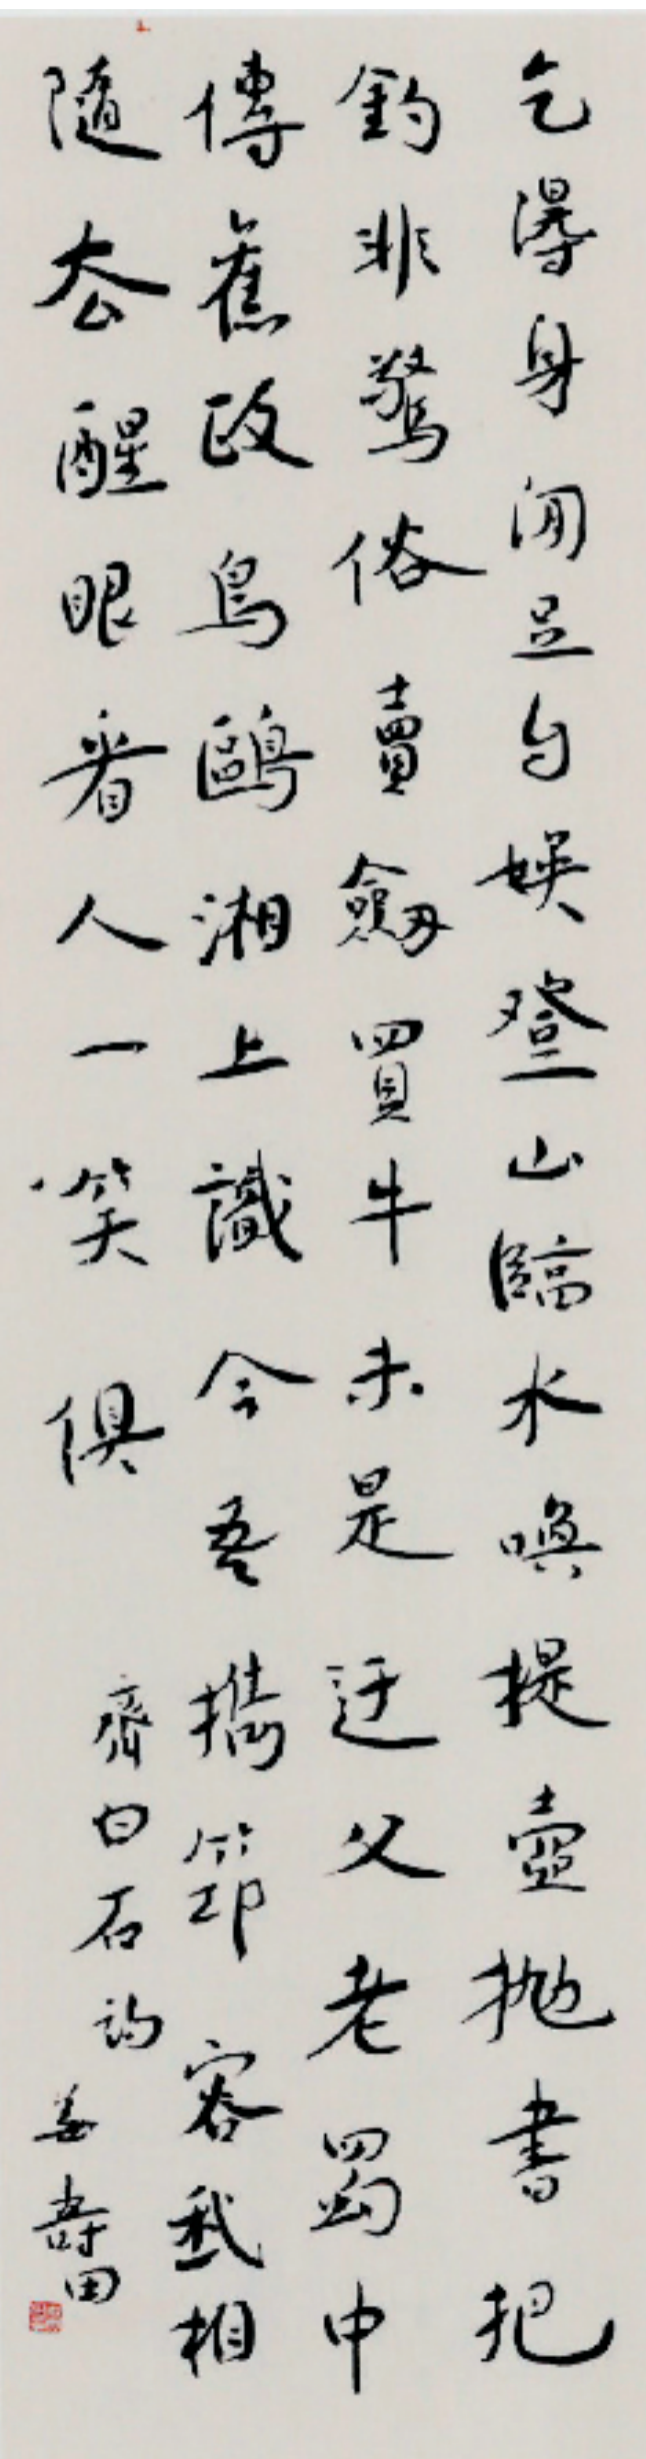 乞得身閒足自娛登山臨水喚提壺拋書把
釣非驚俗賣劍買牛未是迂父老蜀中
傳舊政鳥鷗湘上識今吾攜笻容我相
隨去醒眼看人一笑俱
齊白石詩
姜壽田